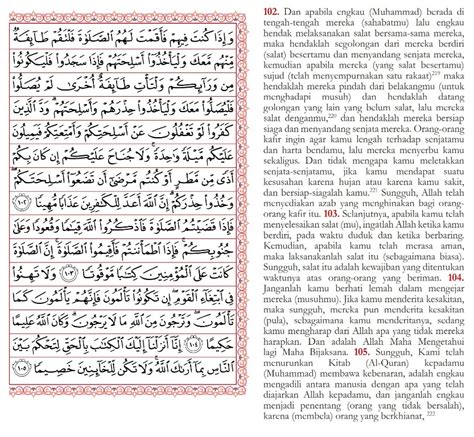 وَإِذَا كُنتَ فِيهِمْ فَأَقَمْتَ لَهُمُ ٱلصَّلَوٰةَ فَلْتَقُمْ طَآئِفَةٌ
مِّنْهُم مَّعَكَ وَلْيَأْخُذُوٓا۟ أَسْلِحَتَهُمْ فَإِذَا سَجَدُوا۟ فَلْيَكُونُوا۟
مِن وَرَآئِكُمْ وَلْتَأْتِ طَآئِفَةٌ أُخْرَىٰ لَمْ يُصَلُّوا۟
فَلْيُصَلُّوا۟ مَعَكَ وَلْيَأْخُذُوا۟ حِذْرَهُمْ وَأَسْلِحَتَهُمْ ۗ وَدَّ ٱلَّذِينَ
كَفَرُوا۟ لَوْ تَغْفُلُونَ عَنْ أَسْلِحَتِكُمْ وَأَمْتِعَتِكُمْ فَيَمِيلُونَ
عَلَيْكُم مَّيْلَةً وَٰحِدَةً ۚ وَلَا جُنَاحَ عَلَيْكُمْ إِن كَانَ بِكُمْ
أَذًى مِّن مَّطَرٍ أَوْ كُنتُم مَّرْضَىٰٓ أَن تَضَعُوٓا۟ أَسْلِحَتَكُمْ
وَخُذُوا۟ حِذْرَكُمْ ۗ إِنَّ ٱللَّهَ أَعَدَّ لِلْكَٰفِرِينَ عَذَابًا مُّهِينًا ١٠٢
فَإِذَا قَضَيْتُمُ ٱلصَّلَوٰةَ فَٱذْكُرُوا۟ ٱللَّهَ قِيَٰمًا وَقُعُودًا وَعَلَىٰ
جُنُوبِكُمْ ۚ فَإِذَا ٱطْمَأْنَنتُمْ فَأَقِيمُوا۟ ٱلصَّلَوٰةَ ۚ إِنَّ ٱلصَّلَوٰةَ
كَانَتْ عَلَى ٱلْمُؤْمِنِينَ كِتَٰبًا مَّوْقُوتًا ١٠٣ وَلَا تَهِنُوا۟
فِى ٱبْتِغَآءِ ٱلْقَوْمِ ۖ إِن تَكُونُوا۟ تَأْلَمُونَ فَإِنَّهُمْ يَأْلَمُونَ كَمَا
تَأْلَمُونَ ۖ وَتَرْجُونَ مِنَ ٱللَّهِ مَا لَا يَرْجُونَ ۗ وَكَانَ ٱللَّهُ عَلِيمًا
حَكِيمًا ١٠٤ إِنَّآ أَنزَلْنَآ إِلَيْكَ ٱلْكِتَٰبَ بِٱلْحَقِّ لِتَحْكُمَ بَيْنَ
ٱلنَّاسِ بِمَآ أَرَىٰكَ ٱللَّهُ ۚ وَلَا تَكُن لِّلْخَآئِنِينَ خَصِيمًا ١٠٥
102. Dan apabila engkau (Muhammad) berada di
tengah-tengah mereka (sahabatmu) lalu engkau
hendak melaksanakan salat bersama-sama mereka,
maka hendaklah segolongan dari mereka berdiri
(salat) besertamu dan menyandang senjata mereka,
kemudian apabila mereka (yang salat besertamu)
sujud (telah menyempurnakan satu rakaat)²¹⁹ maka
hendaklah mereka pindah dari belakangmu (untuk
menghadapi musuh) dan hendaklah datang
golongan yang lain yang belum salat, lalu mereka
salat denganmu,²²⁰ dan hendaklah mereka bersiap
siaga dan menyandang senjata mereka. Orang-orang
kafir ingin agar kamu lengah terhadap senjatamu
dan harta bendamu, lalu mereka menyerbu kamu
sekaligus. Dan tidak mengapa kamu meletakkan
senjata-senjatamu, jika kamu mendapat suatu
kesusahan karena hujan atau karena kamu sakit,
dan bersiap-siagalah kamu.²²¹ Sungguh, Allah telah
menyediakan azab yang menghinakan bagi orang-
orang kafir itu. 103. Selanjutnya, apabila kamu telah
menyelesaikan salat (mu), ingatlah Allah ketika kamu
berdiri, pada waktu duduk dan ketika berbaring.
Kemudian, apabila kamu telah merasa aman,
maka laksanakanlah salat itu (sebagaimana biasa).
Sungguh, salat itu adalah kewajiban yang ditentukan
waktunya atas orang-orang yang beriman. 104.
Janganlah kamu berhati lemah dalam mengejar
mereka (musuhmu). Jika kamu menderita kesakitan,
maka sungguh, mereka pun menderita kesakitan
(pula), sebagaimana kamu menderitanya, sedang
kamu mengharap dari Allah apa yang tidak mereka
harapkan. Dan adalah Allah Maha Mengetahui
lagi Maha Bijaksana. 105. Sungguh, Kami telah
menurunkan Kitab (Al-Quran) kepadamu
(Muhammad) membawa kebenaran, adalah engkau
mengadili antara manusia dengan apa yang telah
diajarkan Allah kepadamu, dan janganlah engkau
menjadi penentang (orang yang tidak bersalah),
karena (membela) orang yang berkhianat, ²²²